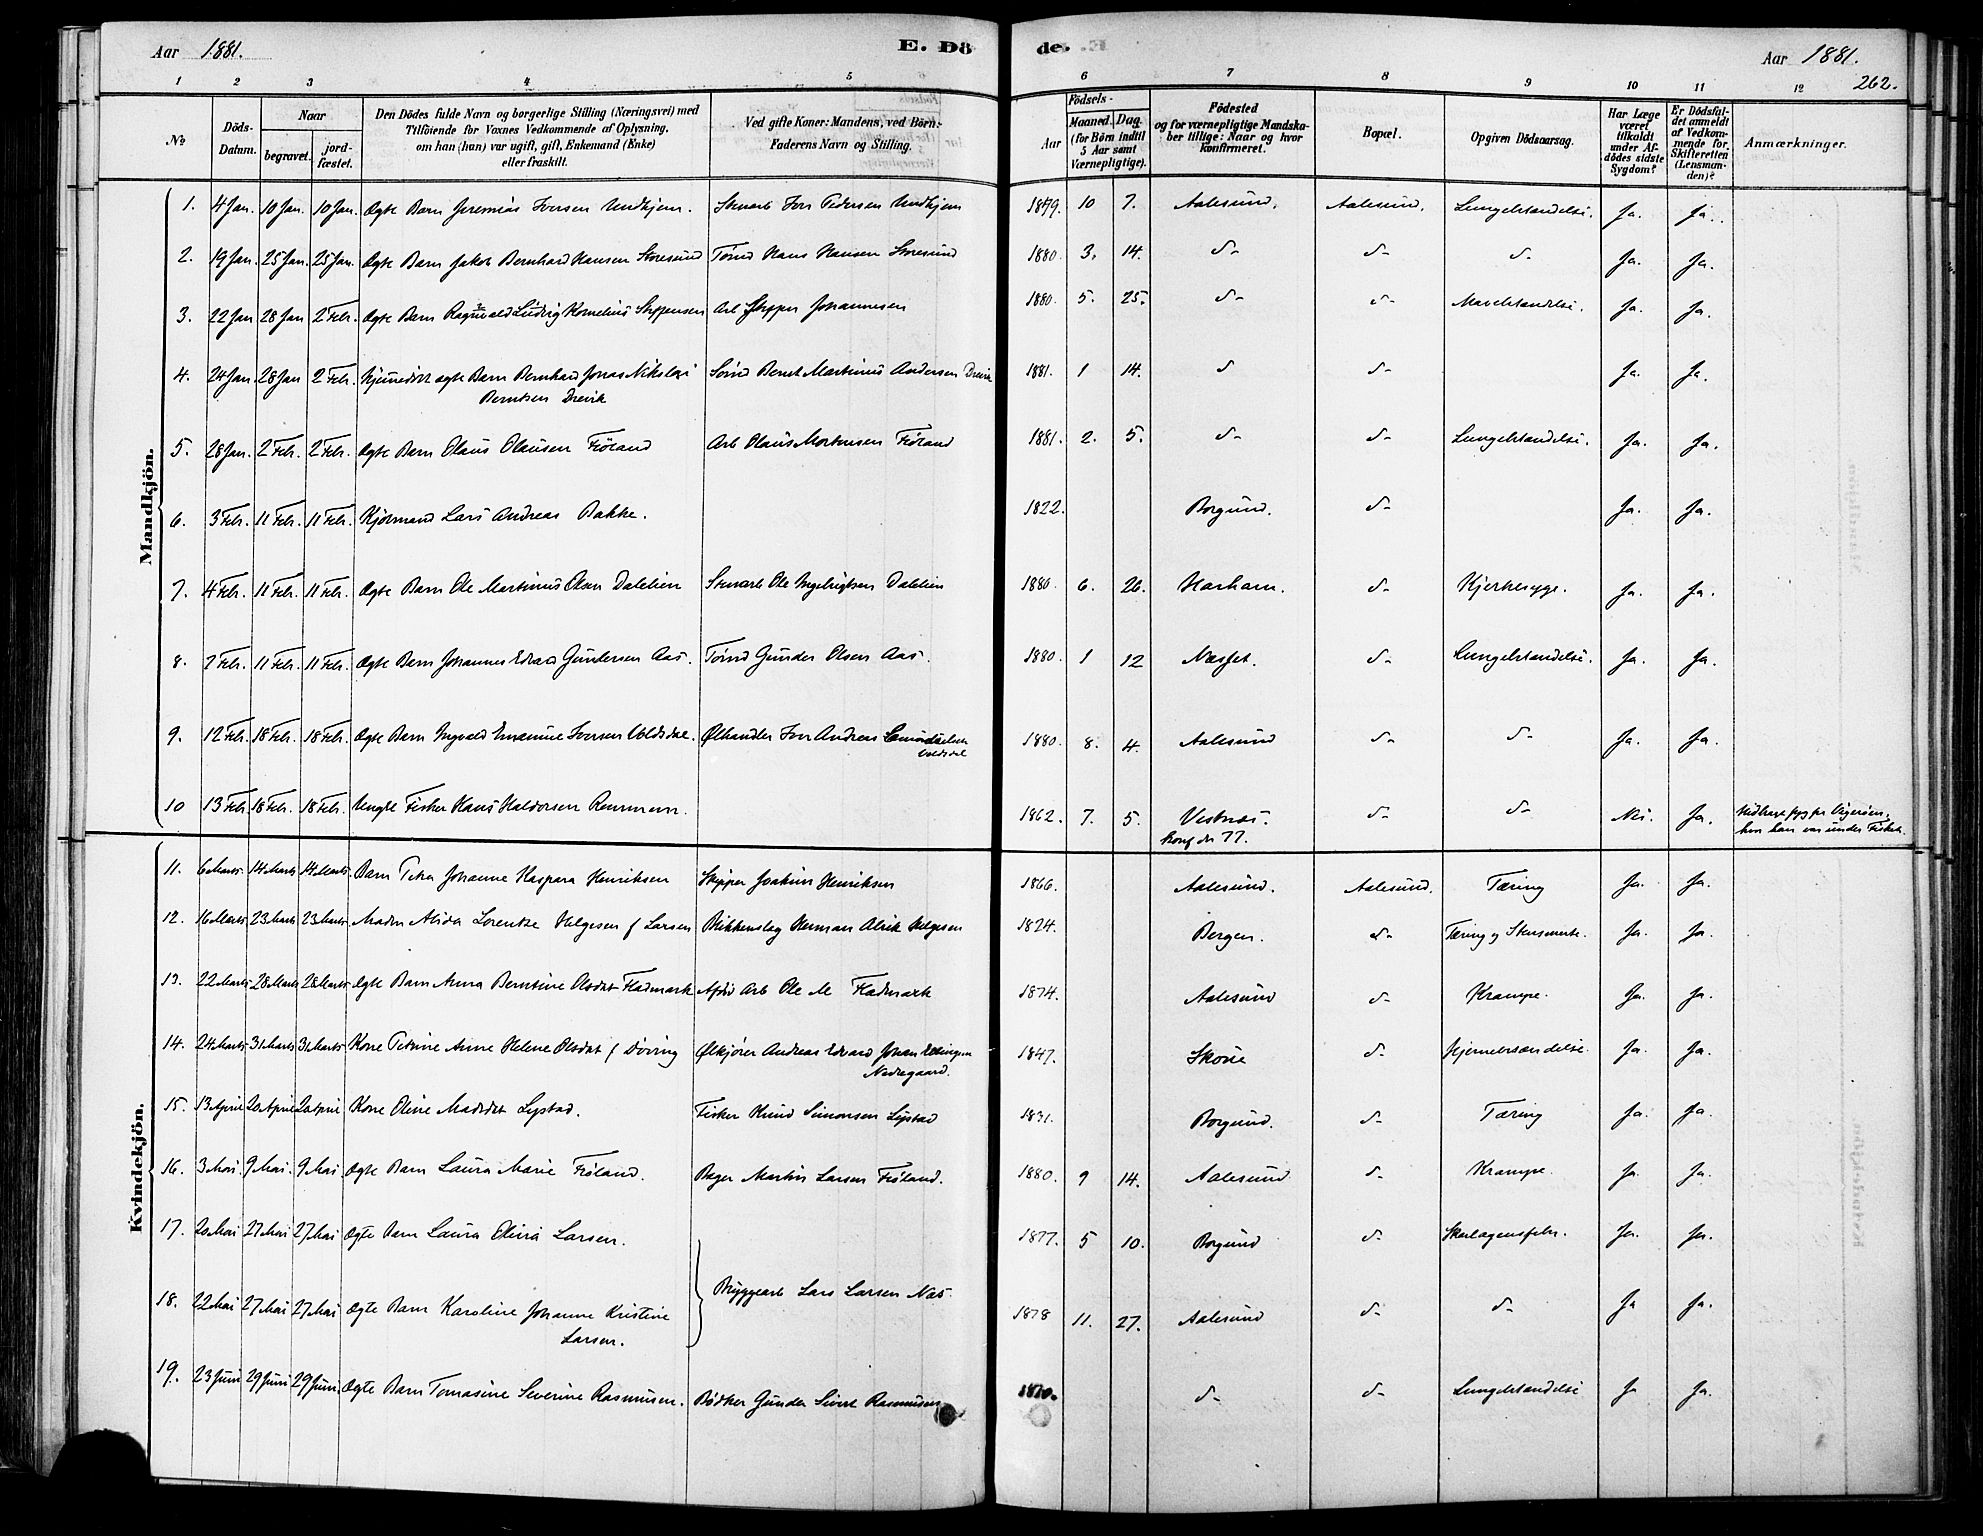 Aar 1881. E. Dö de. Aar 1881.
262.
1 2 3 4 5 6 7 8 9 10 11 12
No. Döds-Datum. Naar begravet. jordfæstet. Den Dödes fulde Navn og borgerlige Stilling (Næringsvei) med Tilföiende for Voxnes Vedkommende af Oplysning, om han (hun) var ugift, gift, Enkemand (Enke) eller fraskilt. Ved gifte Koner: Mandens, ved Börn: Faderens Navn og Stilling. Födsels- Aar Maaned. Dag. (for Börn indtil 5 Aar samt Værnepligtige). Födested og for værnepligtige Mandskaber tillige: Naar og hvor konfirmeret. Bopæl. Opgiven Dödsaarsag. Har Læge været tilkaldt under Afdödes sidste Sygdom? Er Dödsfaldet anmeldt af Vedkommende for Skifteretten (Lensmanden)? Anmærkninger.
Mandkjön.
1. 4 Jan. 10 Jan. 10 Jan. Ægte Barn Jeremias Iversen Undhjem. Stuearb Iver Pedersen Undhjem 1879. 10 7. Aalesund. Aalesund. Lungebtændelse. Ja. Ja.
2. 19 Jan. 25 Jan. 25 Jan. Ægte Barn Jakob Bernhard Hansen Storesund Tømd Hans Hansen Storesund 1880. 3. 14. d- d- d- Ja. Ja.
3. 22 Jan 28 Jan 2 Febr. Ægte Barn Ragnvald Ludvig Kornelius Skippersen Arb Skipper Johannesen 1880. 5. 25. d- d- Ja. Ja.
4. 24 Jan. 28 Jan 2 Febr. Hjemedøbt ægte Barn Bernhard Jonas Nikolai Berntsen Drevik Sømd Bernt Martinus Andersen Drevik 1881. 1 14. d d- Ja. Ja.
5. 28 Jan. 2 Febr. 2 Febr. Ægte Barn Olaus Olausen Frøland Arb Olaus Mortensen Frøland 1881. 2. 5. d- d- Lungebtændelse. Ja. Ja.
6. 3 Febr. 11 Febr. 11 Febr. Kjømand Lars Andreas Bakke. 1822. Borgund. d- Ja. Ja.
7. 4 Febr. 11 Febr. 11 Febr. Ægte Barn Ole Martinus Olsen Dalelien Stuearb Ole Ingebrigtsen Dalelien 1880. 6. 26. Harham. d- Ja. Ja.
8. 7 Febr. 11 Febr. 11 Febr. Ægte Barn Johannes Edvard Gundersen Aas. Tømd Gunder Olsen Aas. 1880. 1 12 Næsset. d- Lungebtændelse. Ja. Ja.
9. 12 Febr. 18 Febr. 18 Febr. Ægte Barn Ingvald Iversen Voldsdal. Ølhandler Iver Andreas Voldsdal 1880. 8. 4. Aalesund d- d- Ja. Ja.
10 13 Febr 18 Febr. 18 Febr. Ungk Fisker Hans Haldorsen Remmem. 1862. 7. 5. Vestnæs. konf der 77. d- d- Nei. Ja. hvor han var under Fisket.
Kvindekjön.
11. 6 Marts. 14 Marts. 14 Marts. Barn Petra Johanne Kaspara Henriksen Skipper Joakim Henriksen 1866. Aalesund. Aalesund. Tæring Ja. Ja.
12. 16 Marts. 23 Marts 23 Marts. Madm Alida Lorentze Helgesen f Larsen Blikkenslag Herman Alrik Helgesen 1824. Bergen. d- Ja. Ja.
13. 22 Marts. 28 Marts. 28 Marts. Ægte Barn Anna Berntine Olsdat Fladmark Afdø Arb Ole M Fladmark 1874. Aalesund d- Krampe. Ja. Ja.
14. 24 Marts. 31 Marts 31 Marts. Kone Petrine Anne Helene Olsdat f Døving Ølkjører Andreas Edvard Johan Ellingsen Nedregaard. 1847. Skoue d- Hjernebtændelse. Ja. Ja.
15. 13 April 20 April 20 April Kone Oline Madsdat Lystad. Fisker Knud Simonsen Lystad 1831. Borgund. d- Tæring Ja. Ja.
16. 3 Mai. 9 Mai. 9 Mai Ægte Barn Laura Marie Frøland. Bager Martin Larsen Frøland. 1880. 9 14. Aalesund d- Krampe. Ja. Ja.
17. 20 Mai 27 Mai 27 Mai Ægte Barn Laura Olivia Larsen. Bryggearb Lars Larsen Næs. 1877. 5 10. Borgund d- Skarlagensfeber. Ja. Ja.
18. 22 Mai 27 Mai 27 Mai Ægte Barn Karoline Johanne Kristine Larsen. 1878 11. 27. Aalesund d- d- Ja Ja.
19. 23 Juni 29 Juni 29 Juni Ægte Barn Tomasine Severine Rasmusen. Bødker Gunder Sivert Rasmusen d- d- Lungebtændelse Ja Ja.